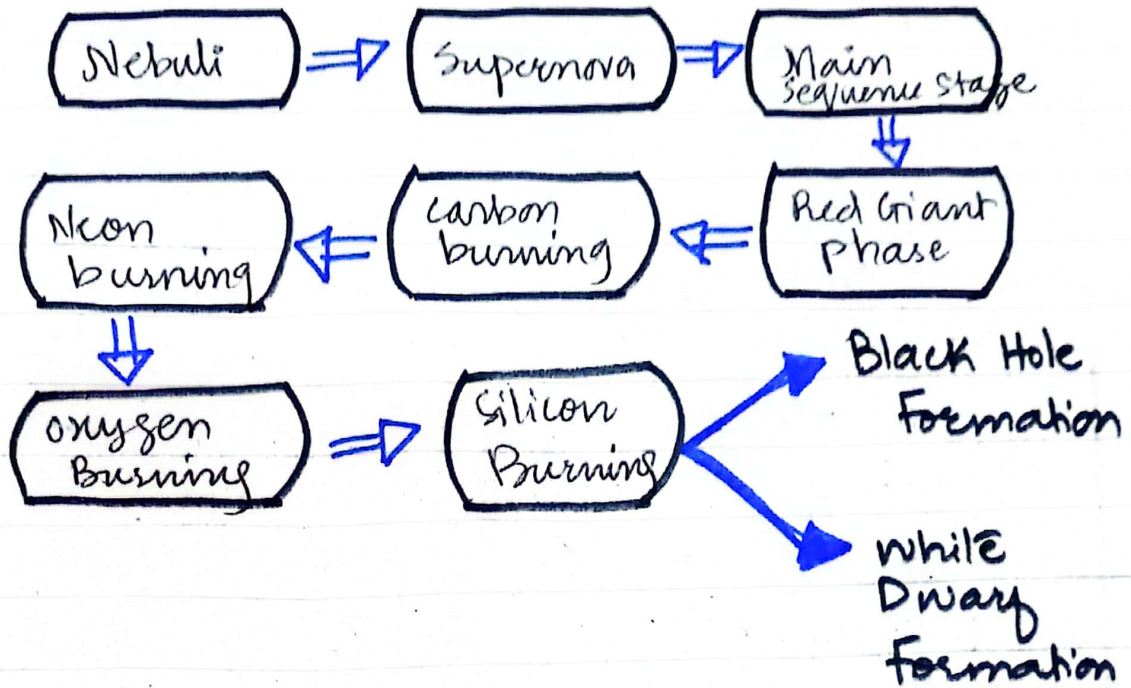 Nebuli
Supernova
Main
sequence stage
Red Giant
phase
carbon
burning
Neon
burning
oxygen
Burning
Silicon
Burning
Black Hole
Formation
White
Dwarf
Formation